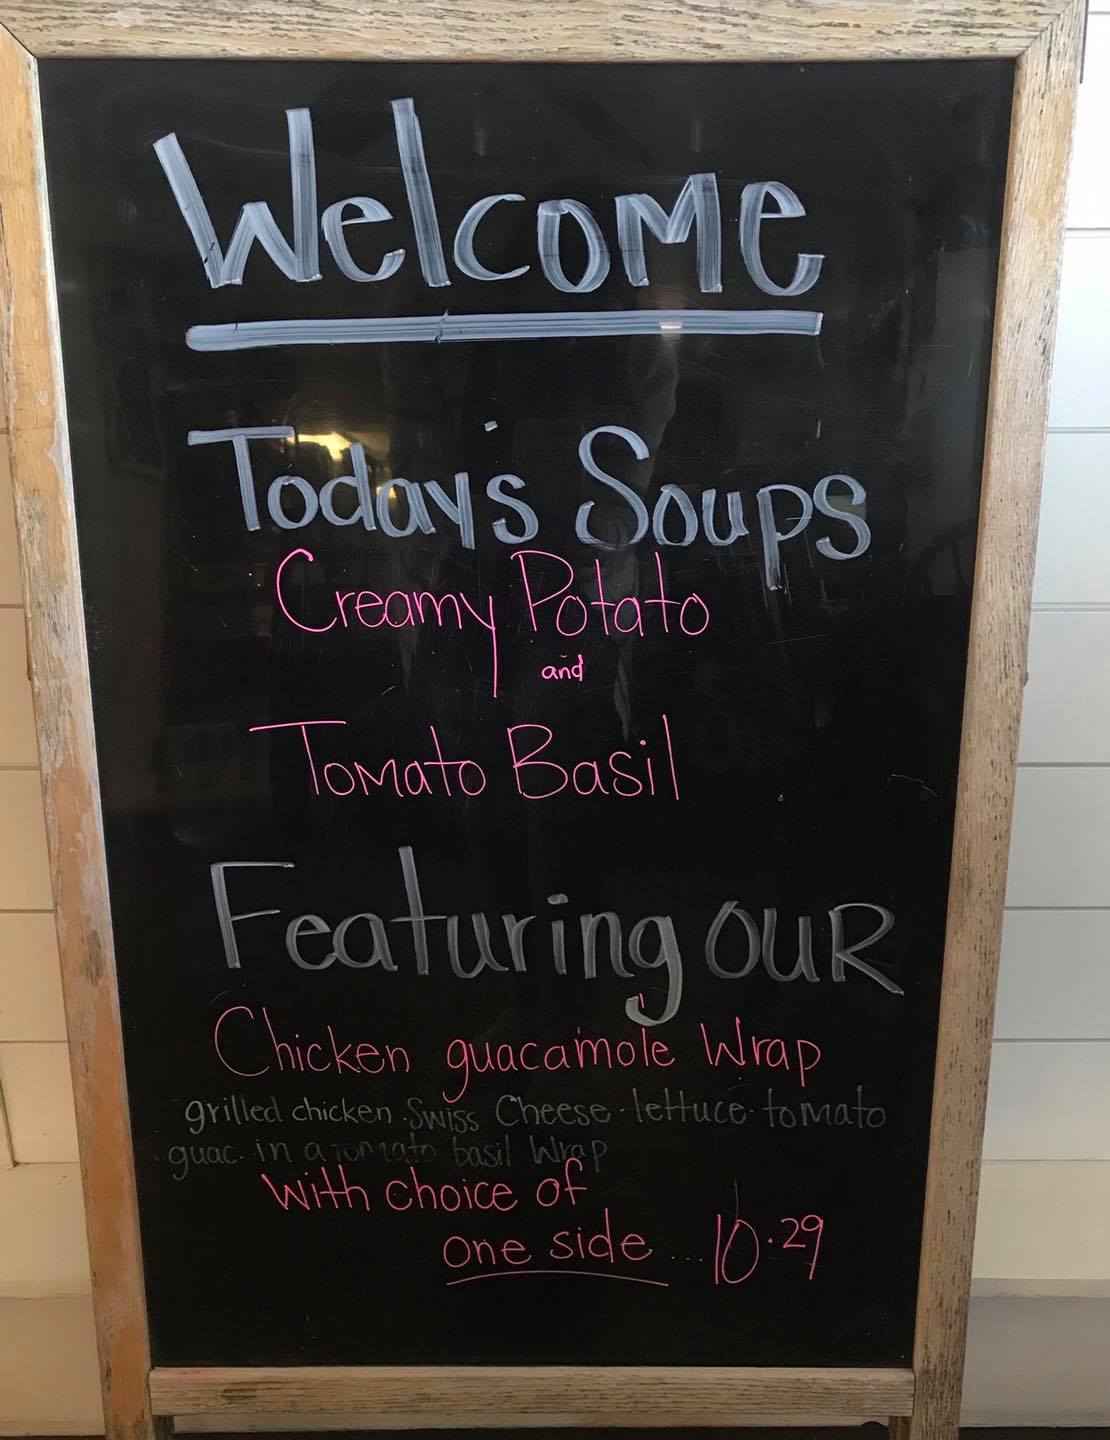 Welcome
Today's Soups
Creamy Potato
and
Tomato Basil
Featuring OUR
Chicken guacamole Wrap
grilled chicken · Swiss Cheese · lettuce · tomato
guac. in a tomato basil Wrap
With choice of
one side .... 10.29